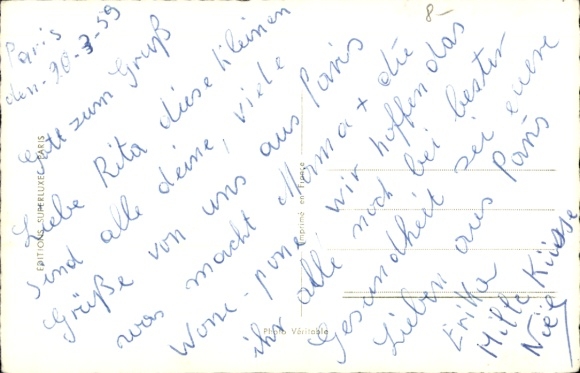 8-
Paris
den 20-3-59
Gott zum Gruß
Liebe Rita diese kleinen
sind alle deine, viele
Grüße von uns aus Paris
was macht Mama + die
wir hoffen das
ihr alle noch bei bester
Gesundheit sei eure
Lieben aus Paris
Erika
Mille Küsse
Noël
EDITIONS SUPERLUXE PARIS
Imprimé en France
Photo Véritable